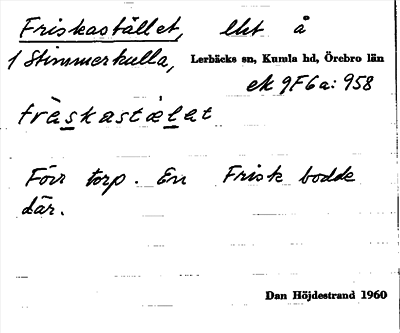 Friskastället, lht å
1 Stimmerkulla, Lerbäcks sn, Kumla hd, Örebro län
ek 9F6a: 958
fr&#x27;skastälet
Förr torp. En Frisk bodde
där.
Dan Höjdestrand 1960